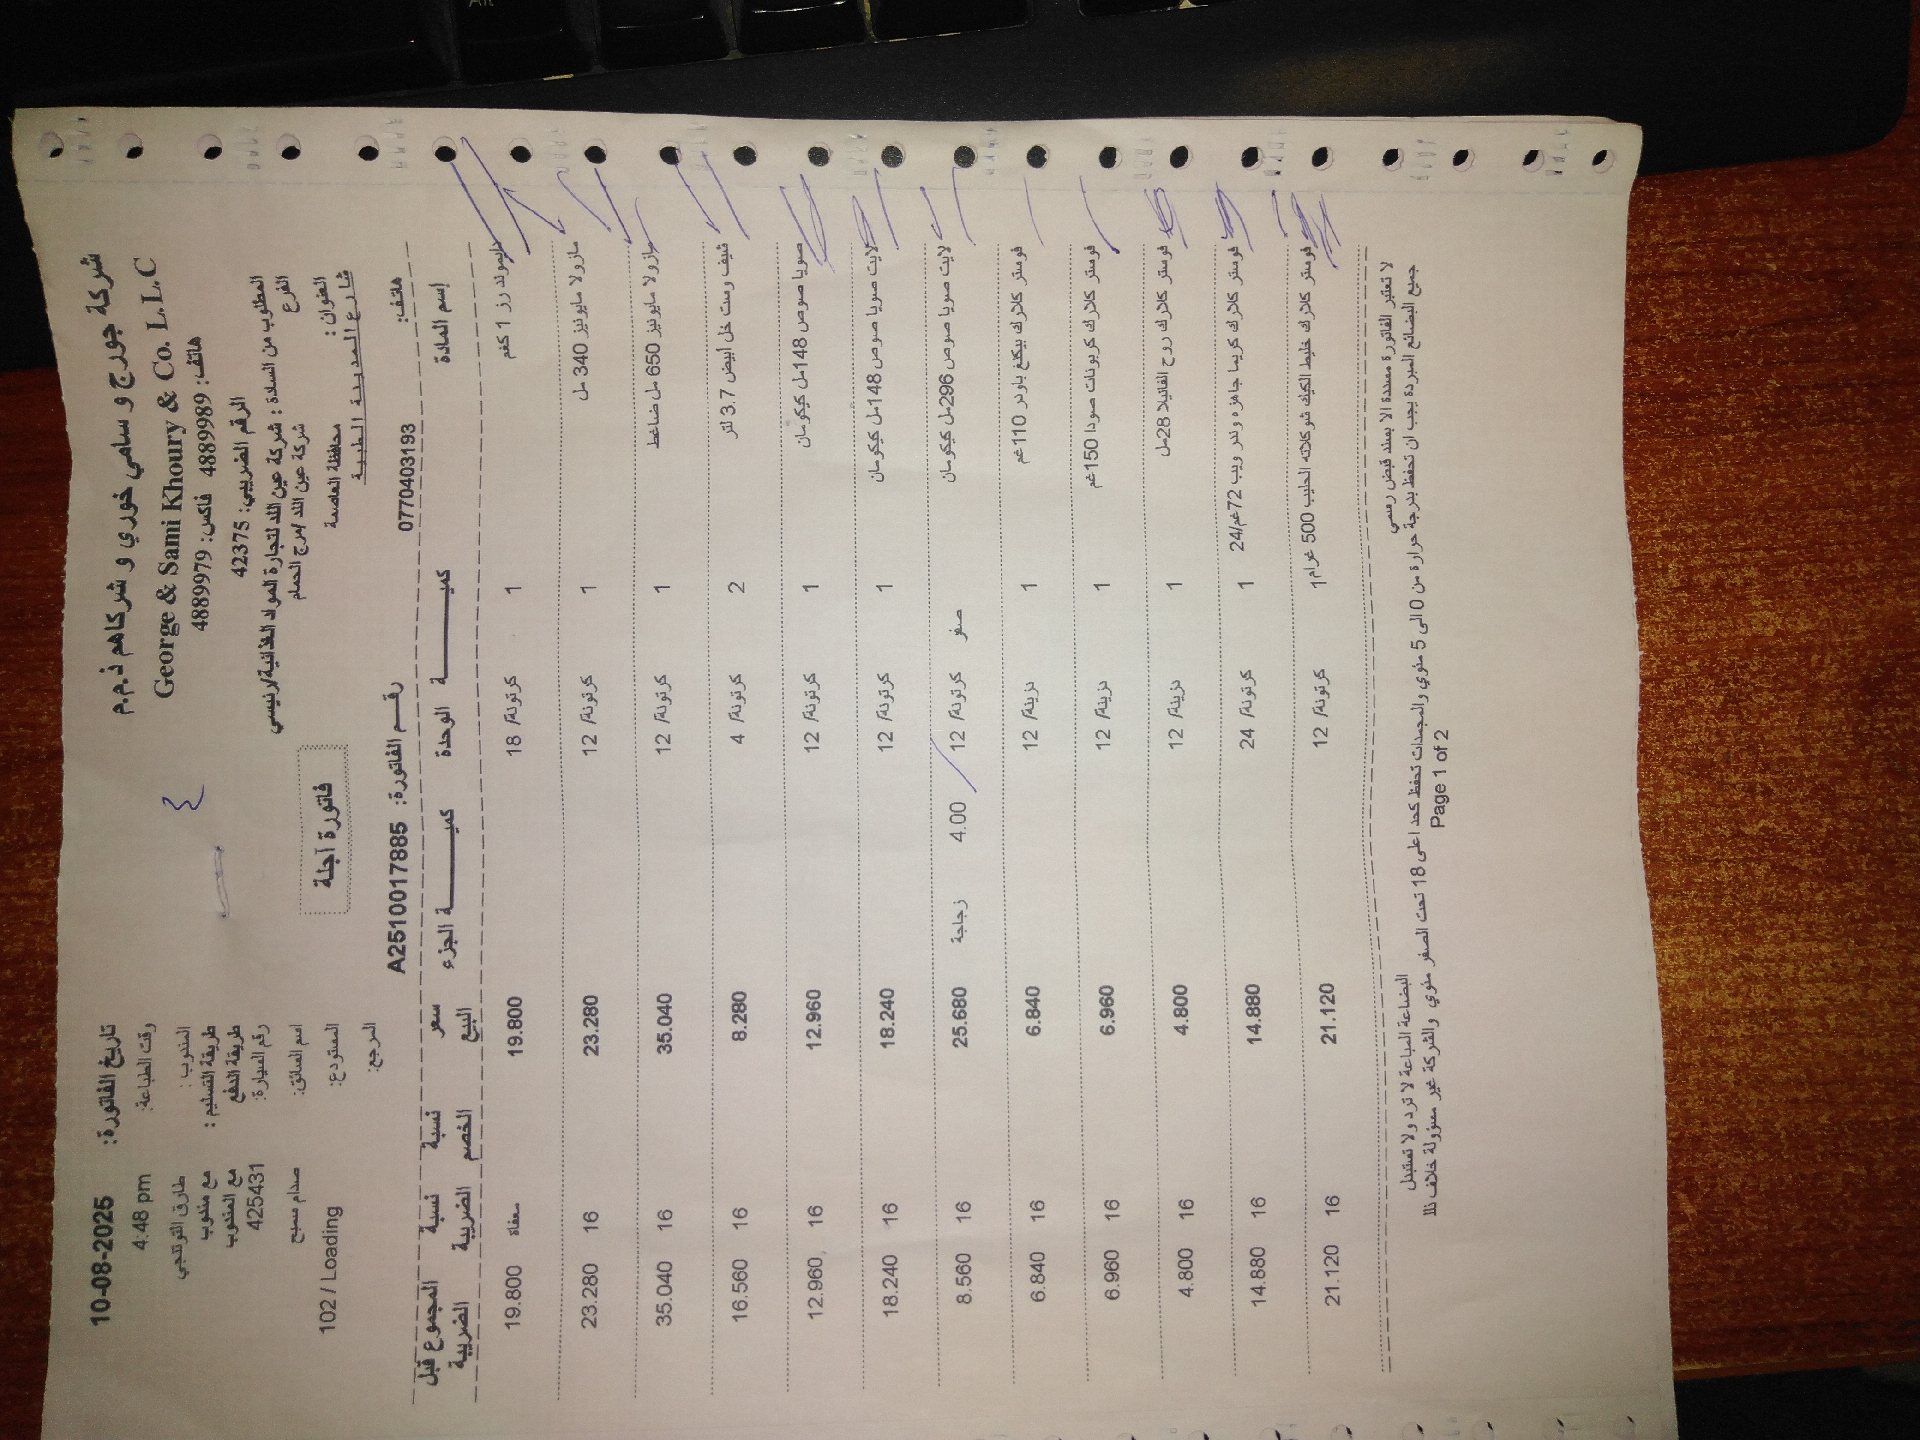 شركة جورج و سامي خوري و شركاهم ذ.م.م
George & Sami Khoury & Co. L.L.C
هاتف: 4889989 فاكس: 4889979
الرقم الضريبي: 42375
المطلوب من السادة : شركة عين اللد لتجارة المواد الغذائية/رئيسي
الفرع شركة عين اللد /مرج الحمام
العنوان : محافظة العاصمة
شارع المدينة الطبية
هاتف: 0770403193
تاريخ الفاتورة: 10-08-2025
وقت الطباعة: 4:48 pm
المندوب : طارق التوتنجي
طريقة التسليم : مع مندوب
طريقة الدفع مع المندوب
رقم السيارة: 425431
اسم السائق: صدام مسيح
المستودع: 102 / Loading
المرجع:
فاتورة آجلة
رقم الفاتورة: A2510017885
إسم المادة كميــــــة الوحدة كميــــــة الجزء سعر البيع نسبة الخصم نسبة الضريبة المجموع قبل الضريبة
دايموند رز 1 كغم 1 كرتونة/ 18 19.800 معفاة 19.800
مازولا مايونيز 340 مل 1 كرتونة/ 12 23.280 16 23.280
مازولا مايونيز 650 مل ضاغط 1 كرتونة/ 12 35.040 16 35.040
شيف وست خل ابيض 3.7 لتر 2 كرتونة/ 4 8.280 16 16.560
صويا صوص 148مل كيكومان 1 كرتونة/ 12 12.960 16 12.960
لايت صويا صوص 148مل كيكومان 1 كرتونة/ 12 18.240 16 18.240
لايت صويا صوص 296مل كيكومان صفر كرتونة/ 12 4.00 زجاجة 25.680 16 8.560
فوستر كلارك بيكنغ باودر 110غم 1 دزينة/ 12 6.840 16 6.840
فوستر كلارك كربونات صودا 150غم 1 دزينة/ 12 6.960 16 6.960
فوستر كلارك روح الفانيلا 28مل 1 دزينة/ 12 4.800 16 4.800
فوستر كلارك كريما جاهزه وندر ويب 72غم/24 1 كرتونة/ 24 14.880 16 14.880
فوستر كلارك خليط الكيك شوكلاته الحليب 500 غرام 1 كرتونة/ 12 21.120 16 21.120
لا تعتبر الفاتورة مسددة الا بسند قبض رسمي البضاعة المباعة لا ترد ولا تستبدل
جميع البضائع المبردة يجب ان تحفظ بدرجة حرارة من 0 الى 5 مئوي والمجمدات تحفظ كحد اعلى 18 تحت الصفر مئوي والشركة غير مسؤولة خلاف ذلك
Page 1 of 2